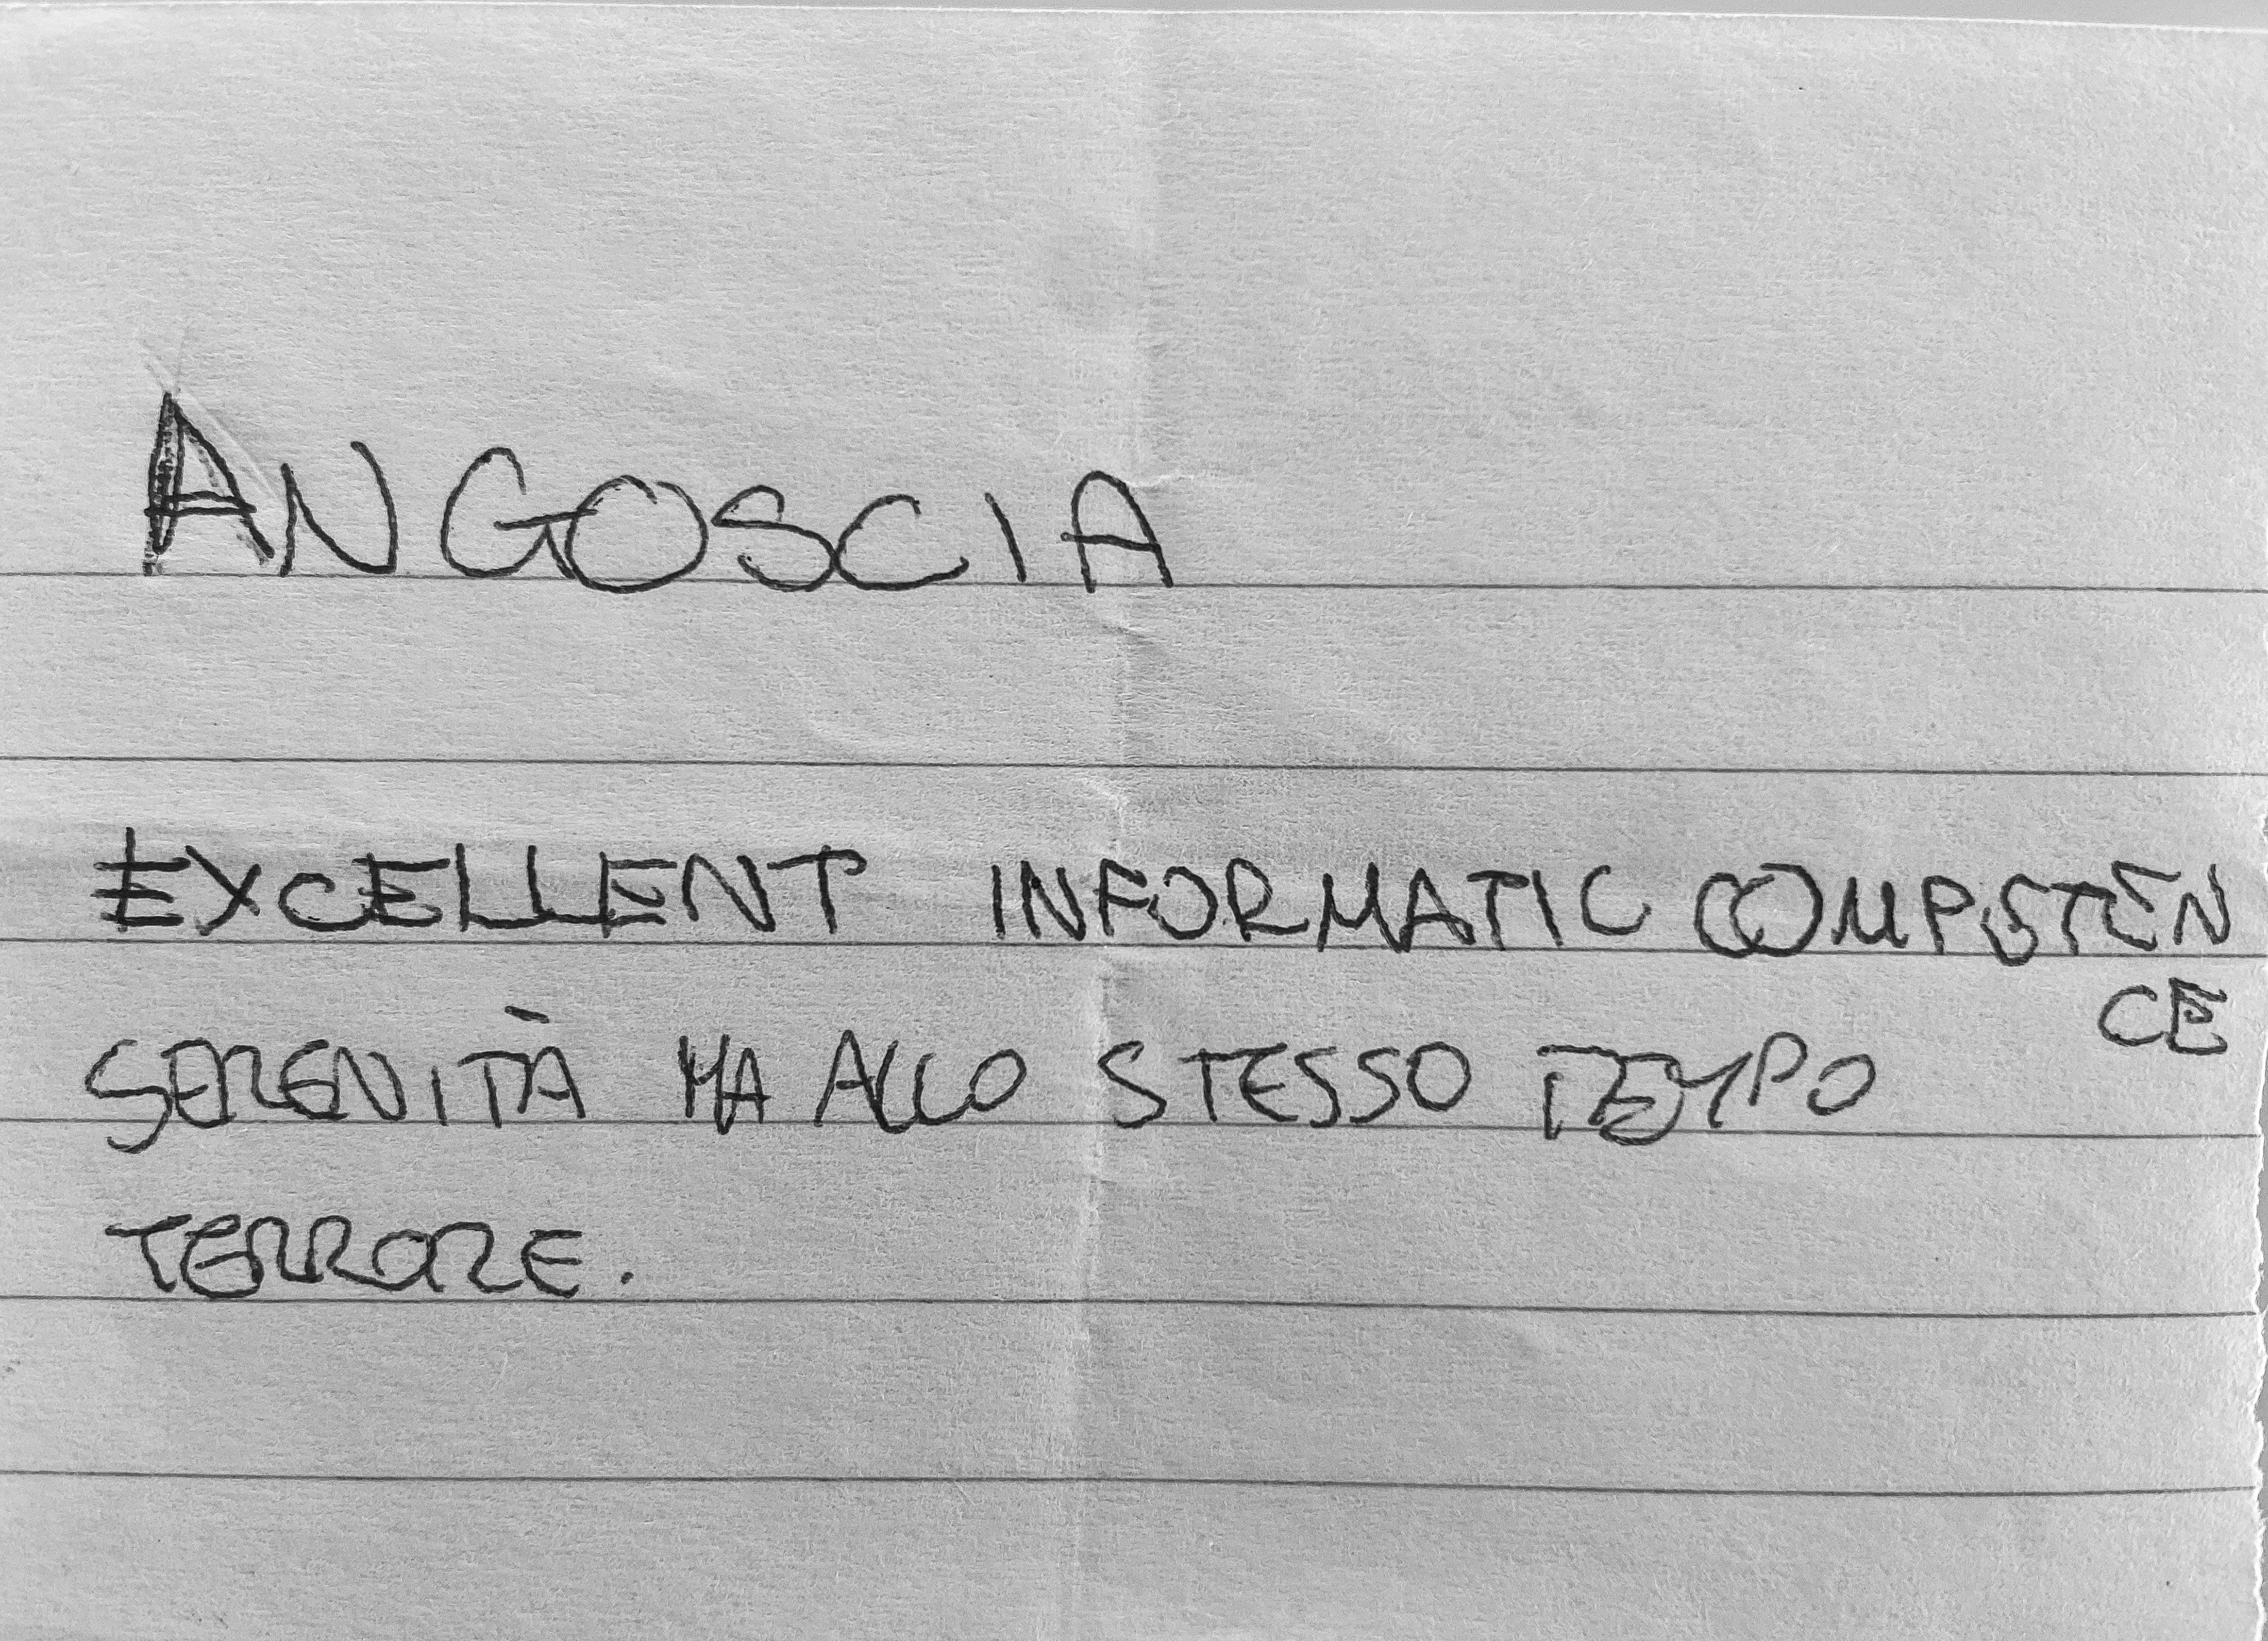 ANGOSCIA
EXCELLENT INFORMATIC COMPETEN
CE
SERENITÀ MA ALLO STESSO TEMPO
TERRORE.